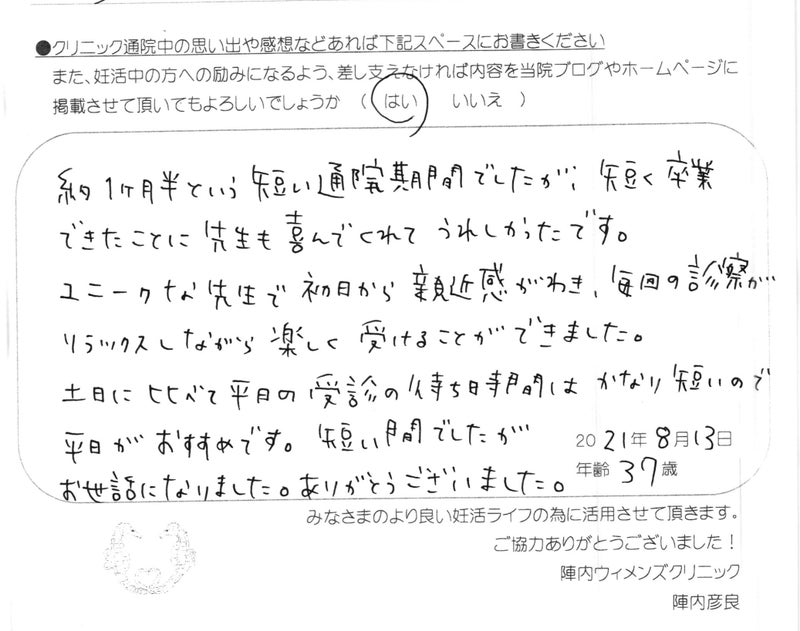 ●クリニック通院中の思い出や感想などあれば下記スペースにお書きください
また、妊活中の方への励みになるよう、差し支えなければ内容を当院ブログやホームページに
掲載させて頂いてもよろしいでしょうか （ はい　いいえ ）
約1ヶ月半という短い通院期間でしたが、短く卒業
できたことに先生も喜んでくれてうれしかったです。
ユニークな先生で初日から親近感がわき、毎回の診察が
リラックスしながら楽しく受けることができました。
土日に比べて平日の受診の待ち時間はかなり短いので
平日がおすすめです。短い間でしたが
お世話になりました。ありがとうございました。
2021年8月13日
年齢 37歳
みなさまのより良い妊活ライフの為に活用させて頂きます。
ご協力ありがとうございました！
陣内ウィメンズクリニック
陣内彦良